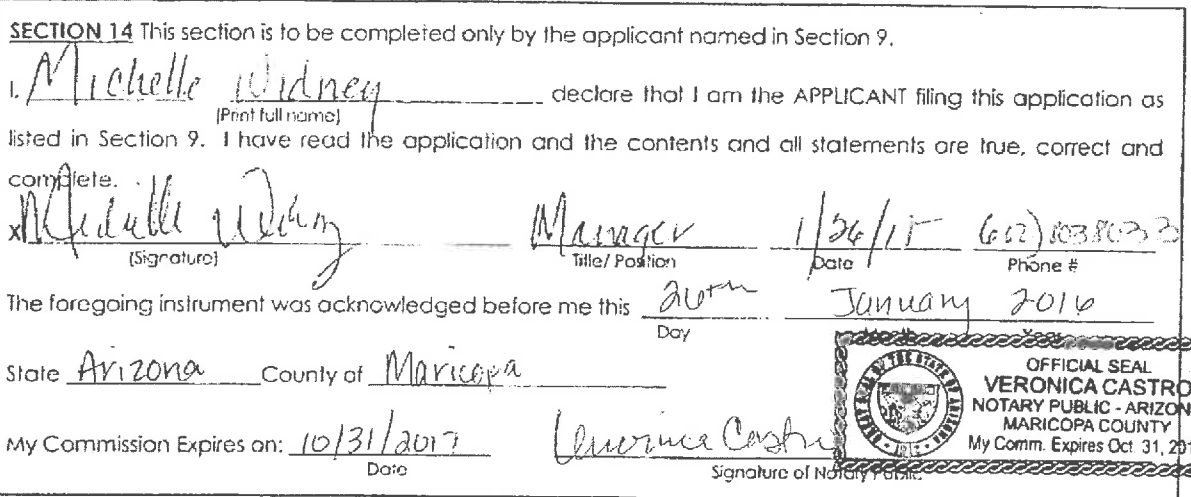 SECTION 14 This section is to be completed only by the applicant named in Section 9.
I, Michelle Widney declare that I am the APPLICANT filing this application as
(Print full name)
listed in Section 9. I have read the application and the contents and all statements are true, correct and
complete.
x Michelle Widney Manager 1/26/15 (602)
(Signature) Title/ Position Date Phone #
The foregoing instrument was acknowledged before me this 26th January 2016
Day Year
State Arizona County of Maricopa
My Commission Expires on: 10/31/2017 Veronica Castro
Date Signature of Notary Public
OFFICIAL SEAL
VERONICA CASTRO
NOTARY PUBLIC - ARIZON
MARICOPA COUNTY
My Comm. Expires Oct. 31, 201